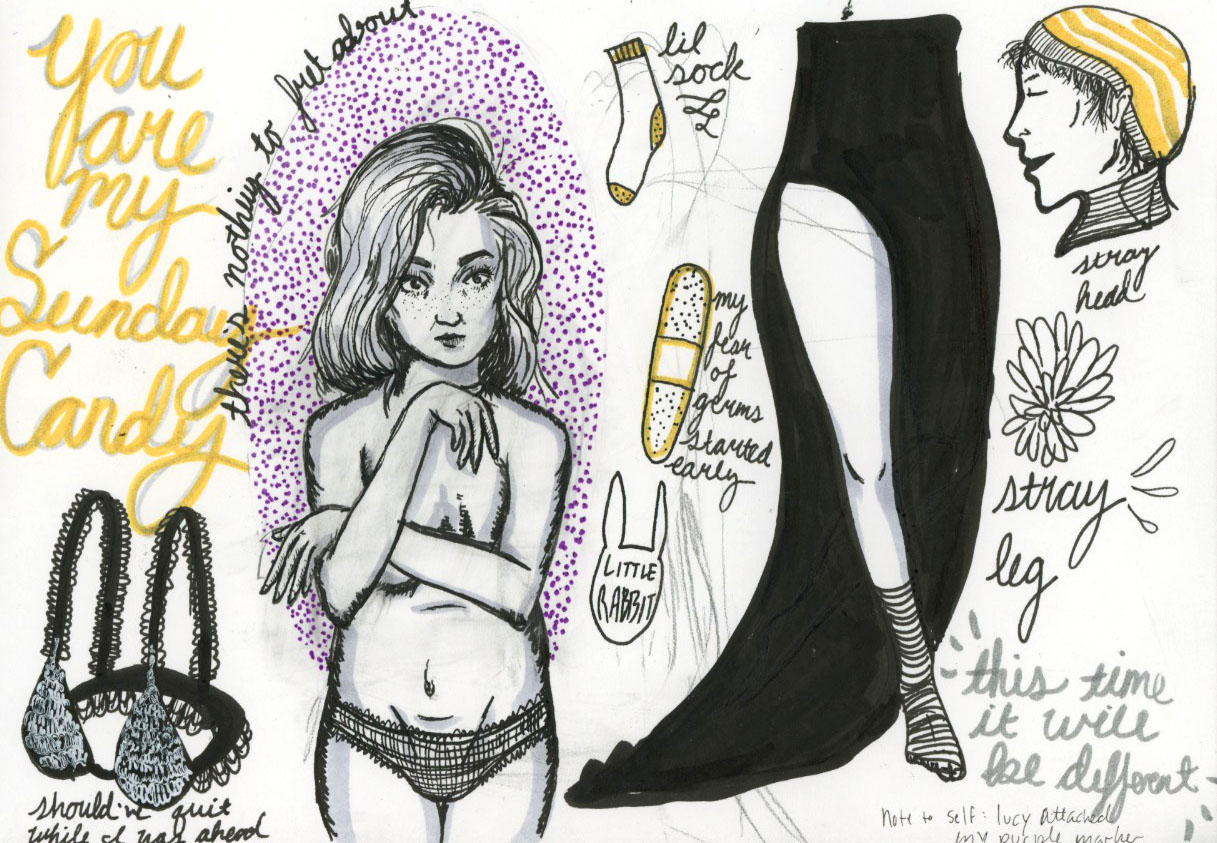 You
are
my
Sunday
Candy
there's nothing to fret about
lil
sock
my
fear
of
germs
started
early
LITTLE
RABBIT
stray
head
stray
leg
this time
it will
be different
should've quit
while I was ahead
Note to self: lucy attached
my purple marker